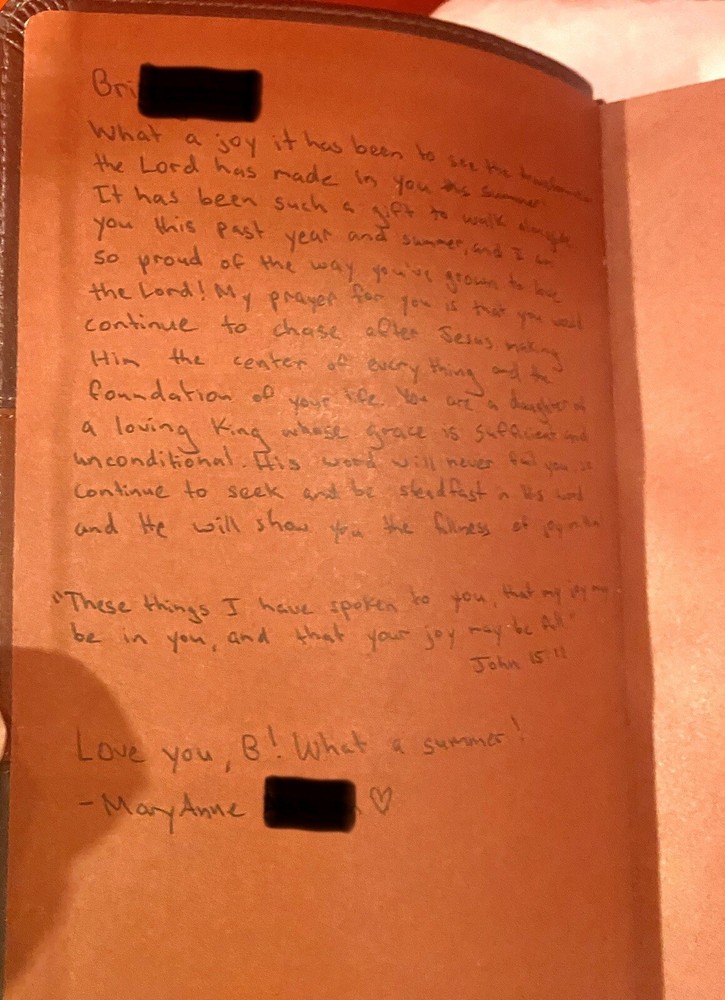 Bri
What a joy it has been to see the
the Lord has made in you this summer.
It has been such a gift to walk alongside
you this past year and summer, and I am
so proud of the way you've grown to love
the Lord! My prayer for you is that you would
continue to chase after Jesus making
Him the center of everything and the
foundation of your life. You are a daughter of
a loving King whose grace is sufficient and
unconditional. His word will never fail you so
continue to seek and be steadfast in His word
and He will show you the fullness of joy in Him
"These things I have spoken to you, that my joy may
be in you, and that your joy may be full."
John 15:11
Love you, B! What a summer!
- MaryAnne ♡